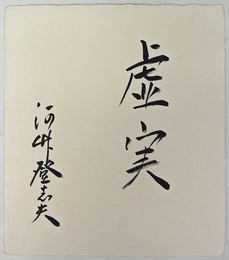 虚実
河竹登志夫